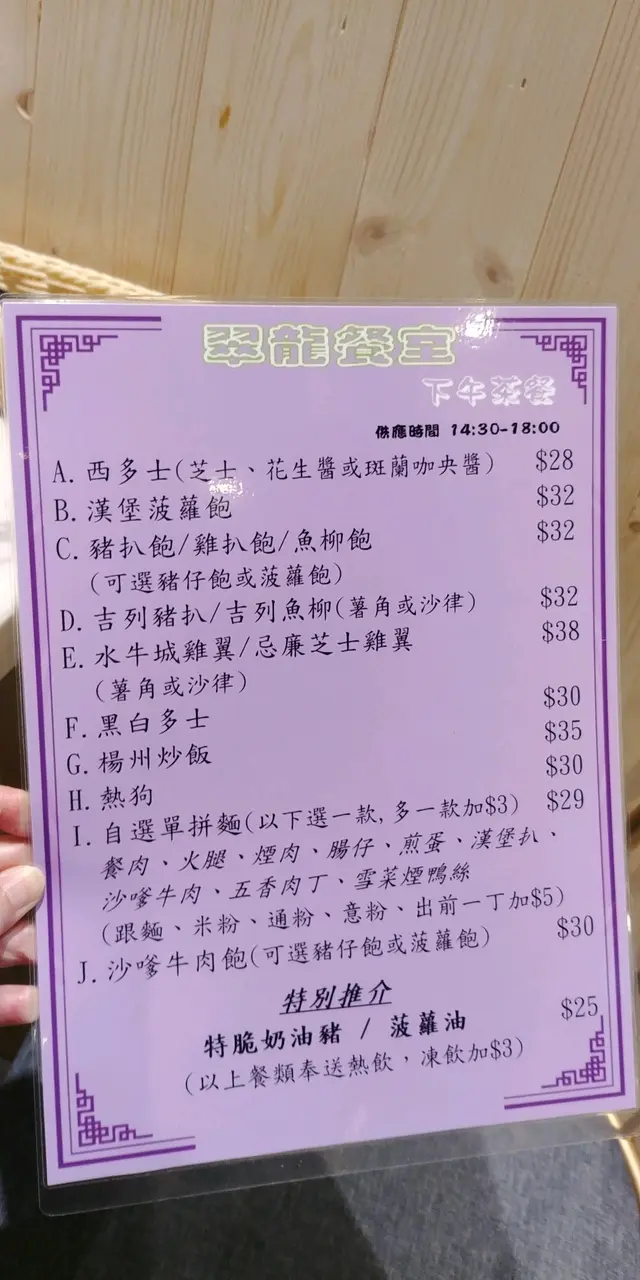 翠龍餐室
下午茶餐
供應時間 14:30-18:00
A. 西多士(芝士、花生醬或斑蘭咖央醬) $28
B. 漢堡菠蘿飽 $32
C. 豬扒飽/雞扒飽/魚柳飽 $32
(可選豬仔飽或菠蘿飽)
D. 吉列豬扒/吉列魚柳(薯角或沙律) $32
E. 水牛城雞翼/忌廉芝士雞翼 $38
(薯角或沙律)
F. 黑白多士 $30
G. 楊州炒飯 $35
H. 熱狗 $30
I. 自選單拼麵(以下選一款, 多一款加$3) $29
餐肉、火腿、煙肉、腸仔、煎蛋、漢堡扒、
沙嗲牛肉、五香肉丁、雪菜煙鴨絲
(跟麵、米粉、通粉、意粉、出前一丁加$5)
J. 沙嗲牛肉飽(可選豬仔飽或菠蘿飽) $30
特別推介
特脆奶油豬 / 菠蘿油 $25
(以上餐類奉送熱飲，凍飲加$3)